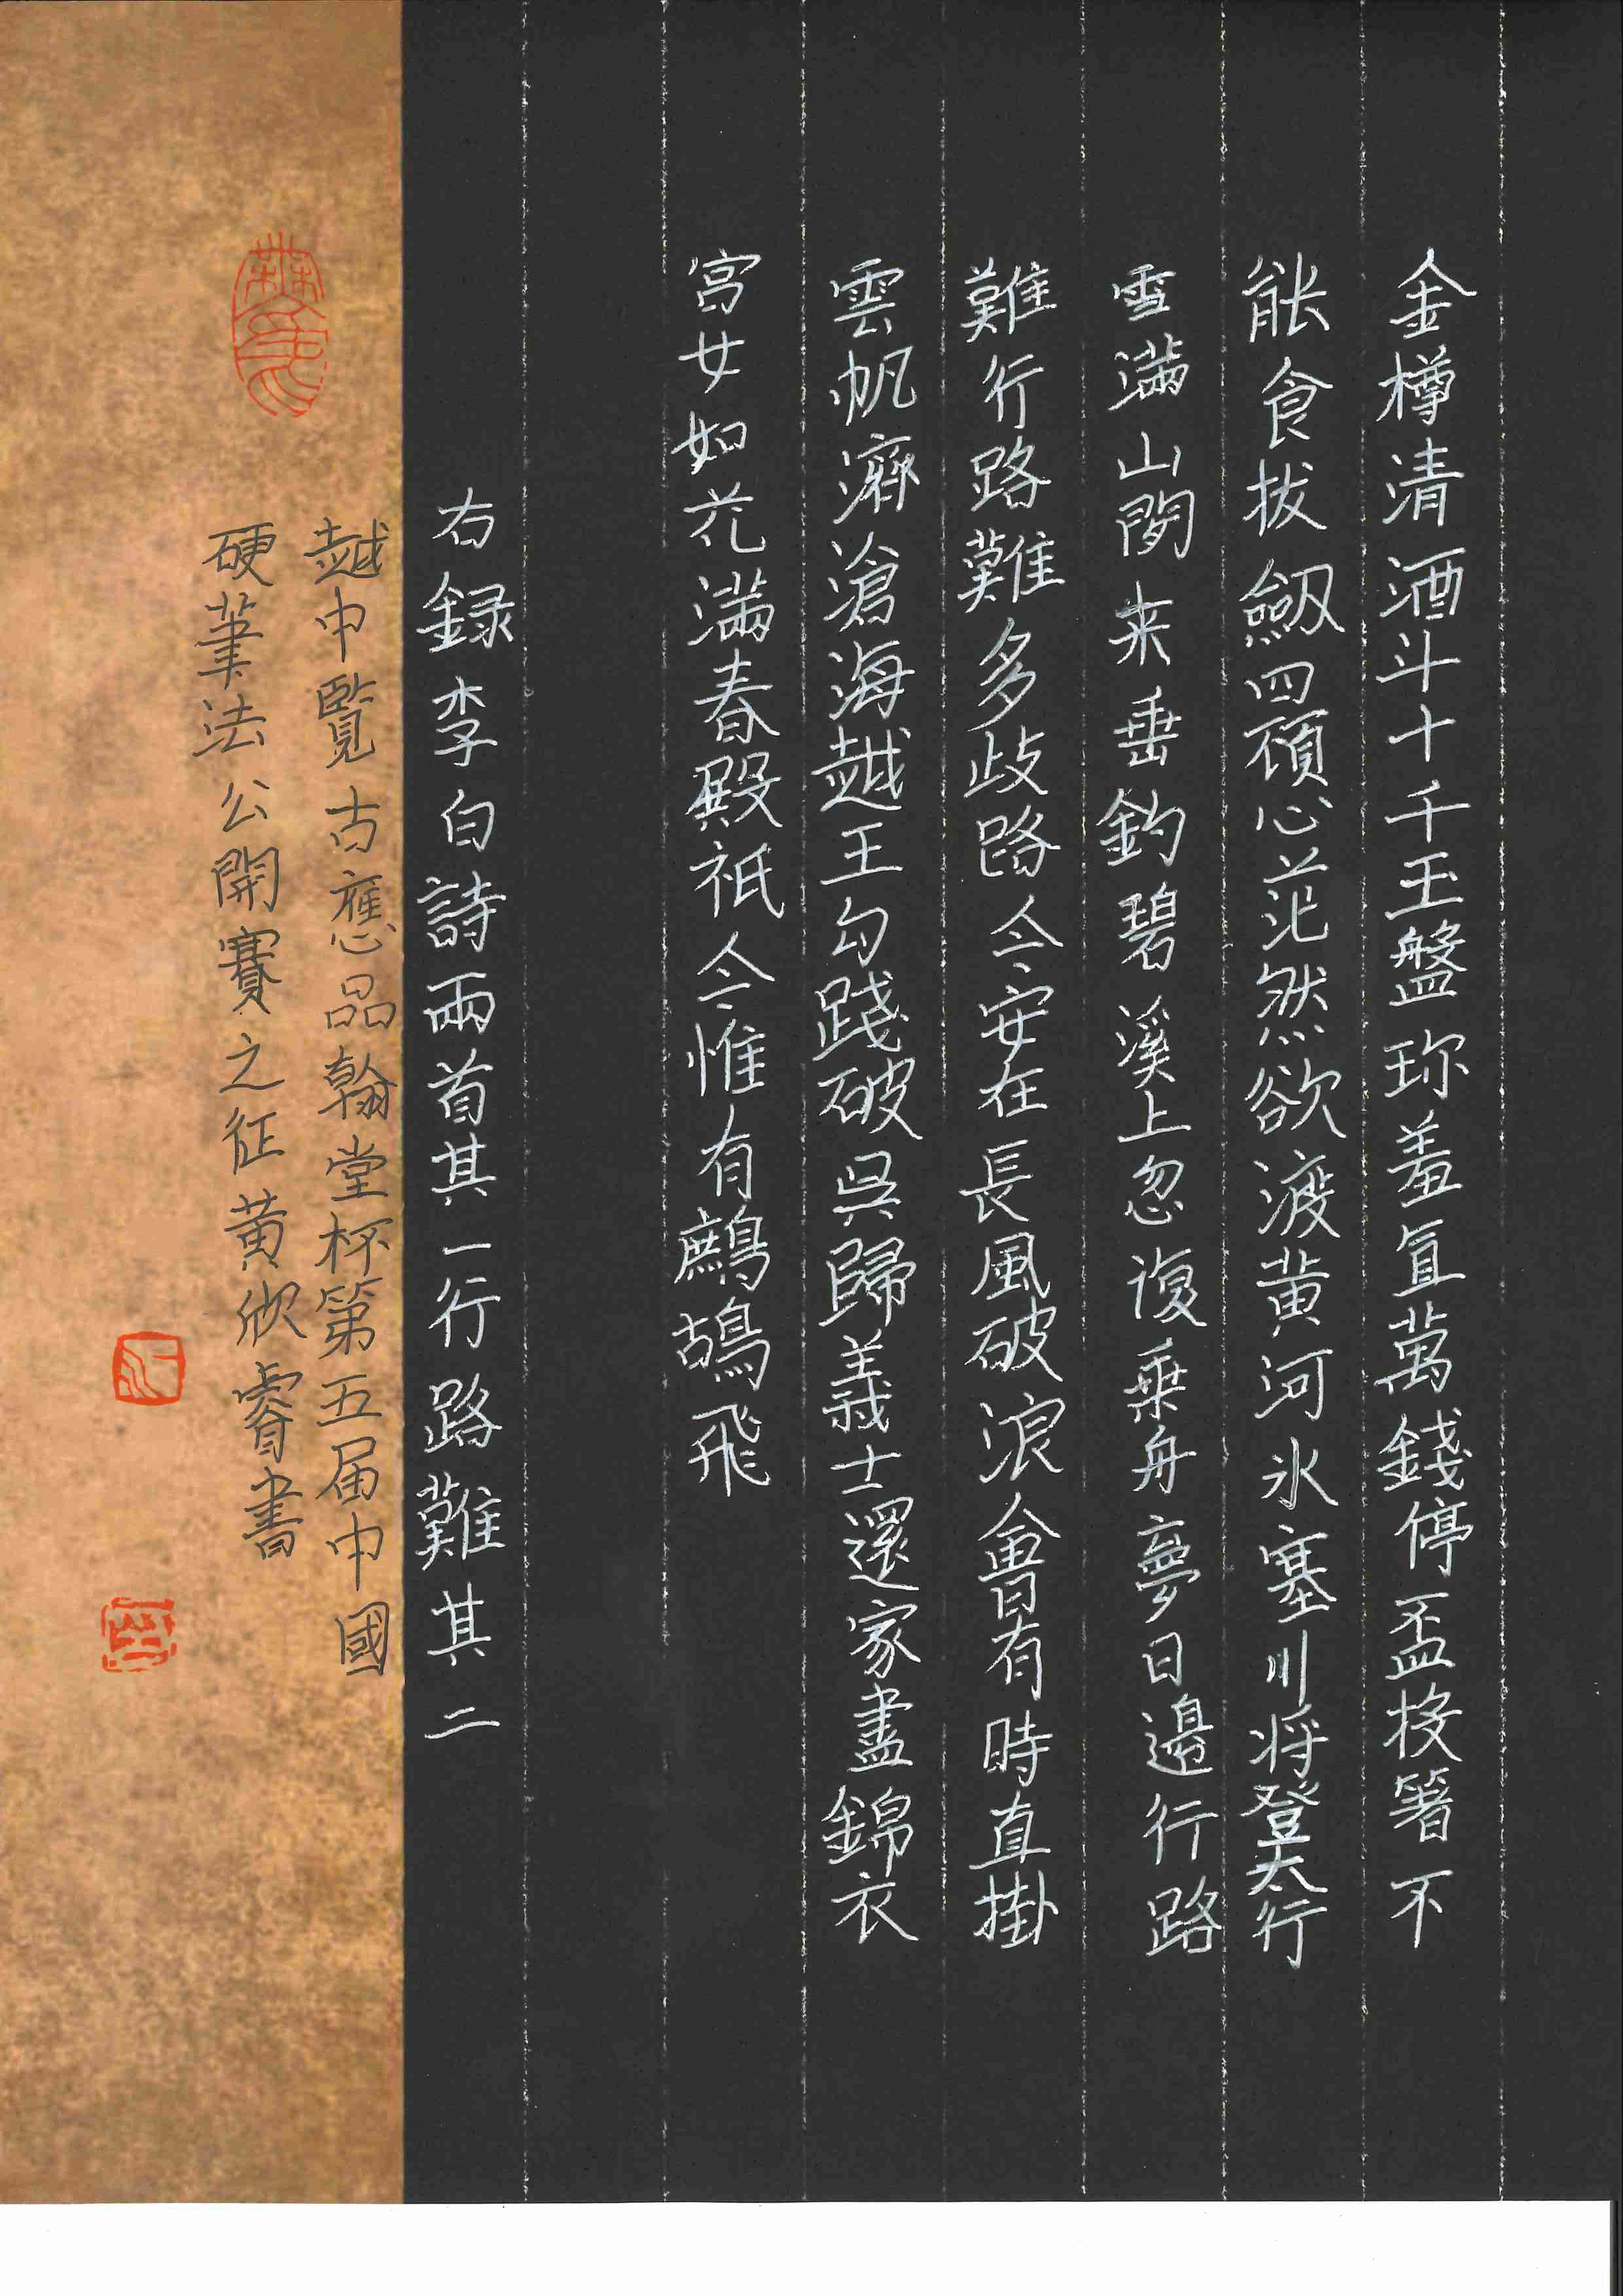 金樽清酒斗十千玉盤珎羞直萬錢停盃投箸不
能食拔劔四顧心茫然欲渡黄河氷塞川将登太行
雪滿山閒来垂釣碧溪上忽復乗舟夢日邉行路
難行路難多歧路今安在長風破浪會有時直掛
雲帆濟滄海越王勾踐破吳歸義士還家盡錦衣
宫女如花滿春殿祇今惟有鷓鴣飛
右録李白詩兩首其一行路難其二
越中覽古應品翰堂杯第五届中國
硬筆法公開賽之征黄欣睿書